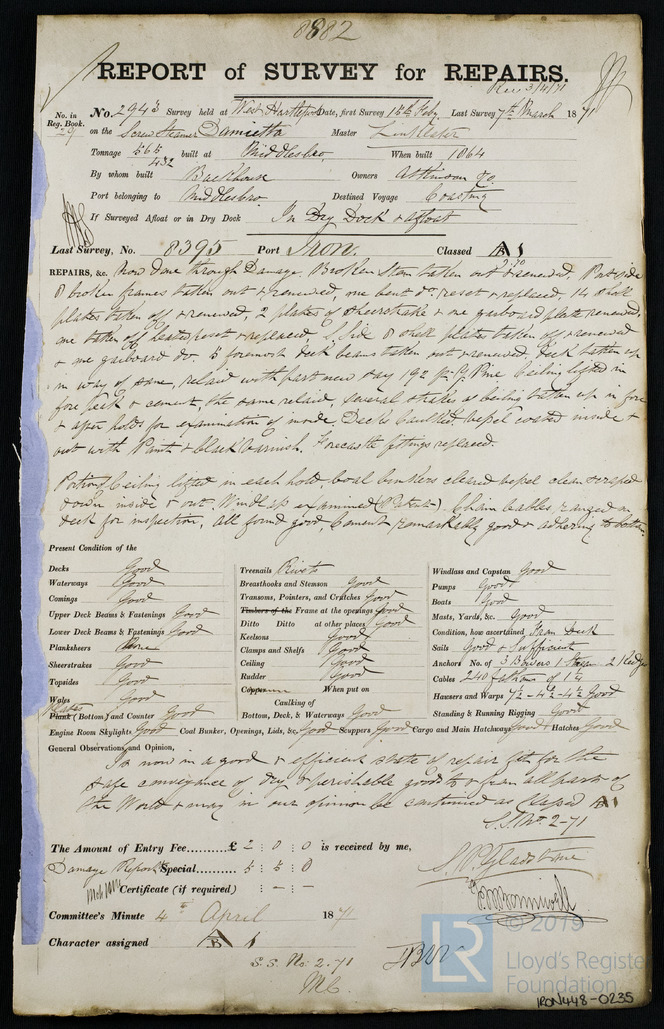 8882
REPORT of SURVEY for REPAIRS.
Rec 3/4/71
No. in Reg. Book.
No. 2943 Survey held at West Hartlepool Date, first Survey 15th Feby Last Survey 7th March 1871
on the Screw Steamer Damietta Master Linklater
Tonnage 565 built at Middlesbro. When built 1864
432
By whom built Backhouse Owners Atkinson & Co.
Port belonging to Middlesbro Destined Voyage Coasting
If Surveyed Afloat or in Dry Dock In Dry Dock & afloat
Last Survey, No. 8395 Port Iron. Classed A 1
2.70
REPAIRS, &c. Now done through Damage. Broken Stem taken out & renewed. Port side
8 broken frames taken out & renewed, one bent do. reset & replaced, 14 Shell
plates taken off & renewed, 2 plates of Sheerstrake & one garboard plate renewed,
one taken off heated reset & replaced, S. Side 8 shell plates taken off & renewed
& one garboard do. 5 foremost deck beams taken out & renewed. Deck taken up
in way of same, relaid with part new say 192 ft Y. Pine Ceiling lifted in
fore peak & cement, the same relaid, several strakes of Ceiling taken up in fore
& after holds for examination of inside, Decks Caulked. Vessel coated inside &
out with Paint & black varnish. Forecastle fittings replaced.
Portion Ceiling lifted in each hold, coal bunkers cleared vessel clean scraped
down inside & out. Windlass examined (Patent) Chain Cables ranged on
deck for inspection, all found good, Cement remarkably good & adhering to bottom
Present Condition of the
Decks Good
Waterways Good
Comings Good
Upper Deck Beams & Fastenings Good
Lower Deck Beams & Fastenings Good
Planksheers
Sheerstrakes Good
Topsides Good
Wales Good
Plates
Plank (Bottom) and Counter Good
Treenails Rivets
Breasthooks and Stemson Good
Transoms, Pointers, and Crutches Good
Timbers of the Frame at the openings Good
Ditto Ditto at other places Good
Keelsons Good
Clamps and Shelfs Good
Ceiling Good
Rudder Good
Copper When put on
Caulking of
Bottom, Deck, & Waterways Good
Windlass and Capstan Good
Pumps Good
Boats Good
Masts, Yards, &c. Good
Condition, how ascertained From Deck
Sails Good & Sufficient
Anchors No. of 3 Bowers 1 Stream 2 Kedges
Cables 240 fathoms of 1 1/4
Hawsers and Warps 7½ - 4½ - 4½ Good
Standing & Running Rigging Good
Engine Room Skylights Good Coal Bunker, Openings, Lids, &c. Good Scuppers Good Cargo and Main Hatchways Good Hatches Good
General Observations and Opinion,
Is now in a good & efficient state of repair fit for the
safe conveyance of Dry & perishable goods to & from all parts of
the World & may in our opinion be continued as Classed A 1
S.S. No. 2-71
The Amount of Entry Fee......£ 2 : 0 : 0 is received by me,
Damage Report Special...... 5 : 5 : 0
Certificate (if required) : - : -
S.P. Gladstone
Committee's Minute 4th April 1871
Character assigned A 1
S.S. No. 2.71
© 2019
LR
Lloyd's Register
Foundation
IRON448-0235